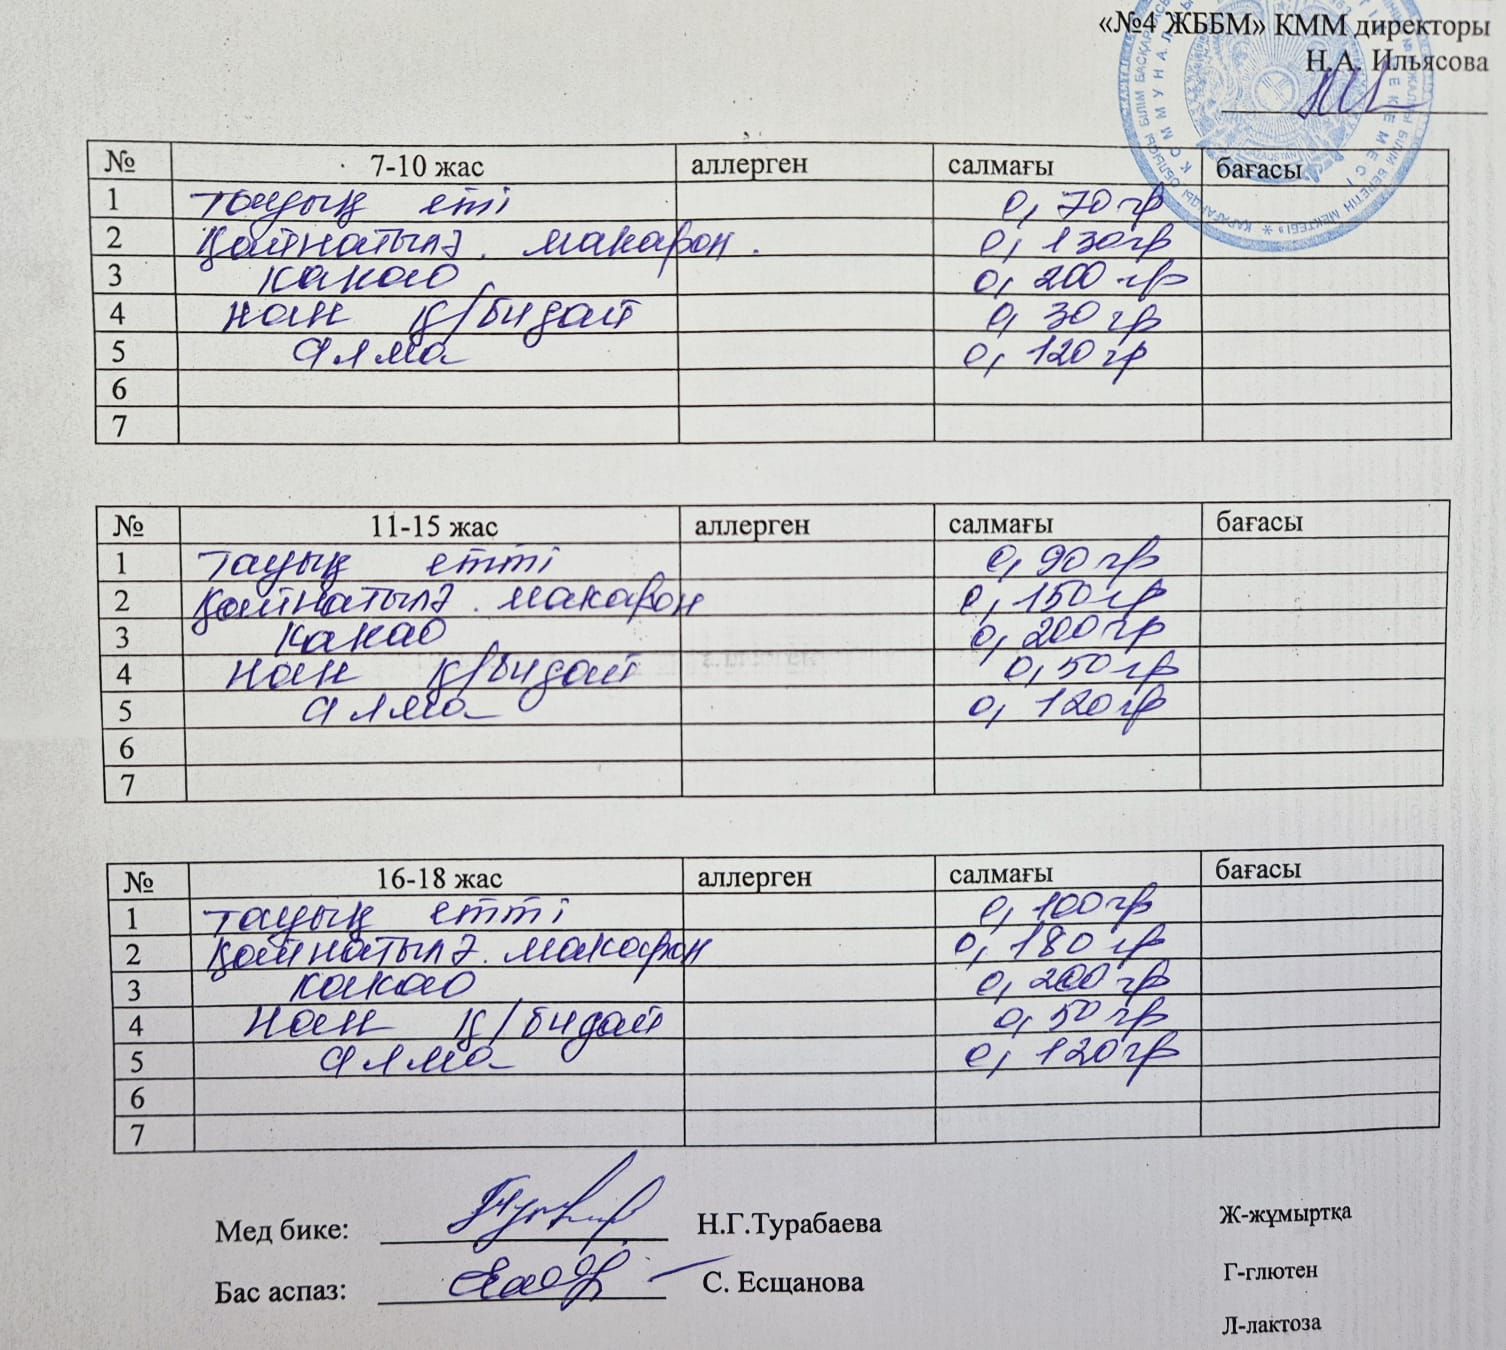 «№4 ЖББМ» КММ директоры
Н.А. Ильясова
№ 7-10 жас аллерген салмағы бағасы
1 Тауық еті 0,70гр
2 Қайнатылғ. макарон. 0,130гр
3 какао 0,200гр
4 нан қ/бидай 0,30гр
5 алма 0,120гр
6
7
№ 11-15 жас аллерген салмағы бағасы
1 Тауық етті 0,90гр
2 Қайнатылғ. макарон 0,150гр
3 какао 0,200гр
4 нан қ/бидай 0,50гр
5 алма 0,120гр
6
7
№ 16-18 жас аллерген салмағы бағасы
1 Тауық етті 0,100гр
2 Қайнатылғ. макарон 0,180гр
3 какао 0,200гр
4 нан қ/бидай 0,50гр
5 алма 0,120гр
6
7
Мед бике: Н.Г.Турабаева
Бас аспаз: С. Есщанова
Ж-жұмыртқа
Г-глютен
Л-лактоза